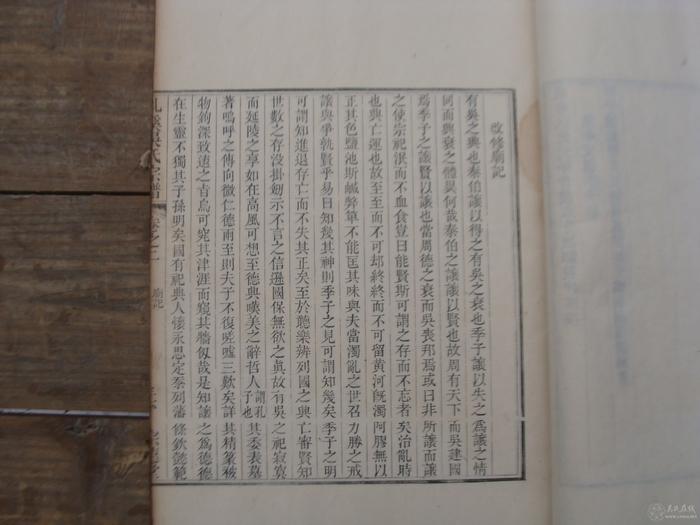 改修廟記
有吳之興也泰伯讓以得之有吳之衰也季子讓以失之爲讓之情
同而興衰之體異何哉泰伯之讓讓以賢也故周有天下而吳建國
焉季子之讓賢以讓也當周德之衰而吳喪邦焉或曰非所讓而讓
之使宗祀泯而不血食豈曰能賢斯可謂之存而不忘者矣治亂時
也興亡運也故至至而不可却終終而不可留黄河旣濁阿膠無以
正其色鹽池斯鹹弊箄不能匡其味與夫當濁亂之世召力勝之戒
讓與爭孰賢乎易曰知幾其神則季子之見可謂知幾矣季子之明
可謂知進退存亡而不失其正矣至於聽樂辨列國之興亡審賢知
世數之存没掛劒示不言之信遜國保無欲之眞故有吳之祀寂寞
而延陵之享如在高風可想至德興嘆美之辭哲人謂孔子也其委表墓
著嗚呼之傳向微仁德甫至則夫子不復嗟嘘三歎矣詳其精篆被
物鈎深致遠之旨烏可究其津涯而窺其牆匈哉是知讓之爲德德
在生靈不獨其子孫明矣國有祀典人懷永思定忝列藩條欽懿範
吳氏宗譜 卷之二 廟記